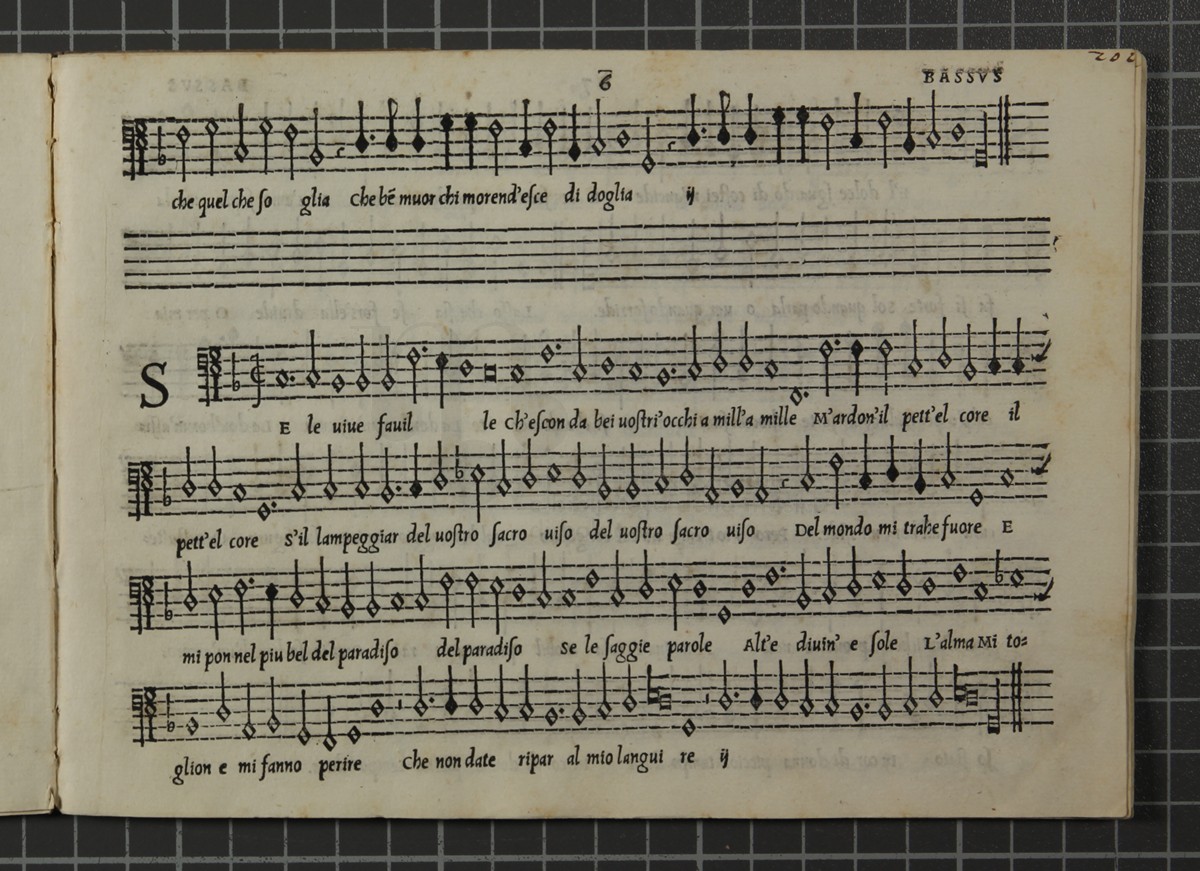 6
BASSVS
202
che quel che ſo glia Che bẽ muor chi morend'eſce di doglia ij
S
E le uiue fauil le Ch'eſcon da bei uoſtri'occhi a mill'a mille M'ardon'il pett'el core il
pett'el core S'il lampeggiar del uoſtro ſacro uiſo del uoſtro ſacro uiſo Del mondo mi trahe fuore E
mi pon nel piu bel del paradiſo del paradiſo Se le ſaggie parole Alt'e diuin' e ſole L'alma Mi to=
glion e mi fanno perire Che non date ripar al mio langui re ij